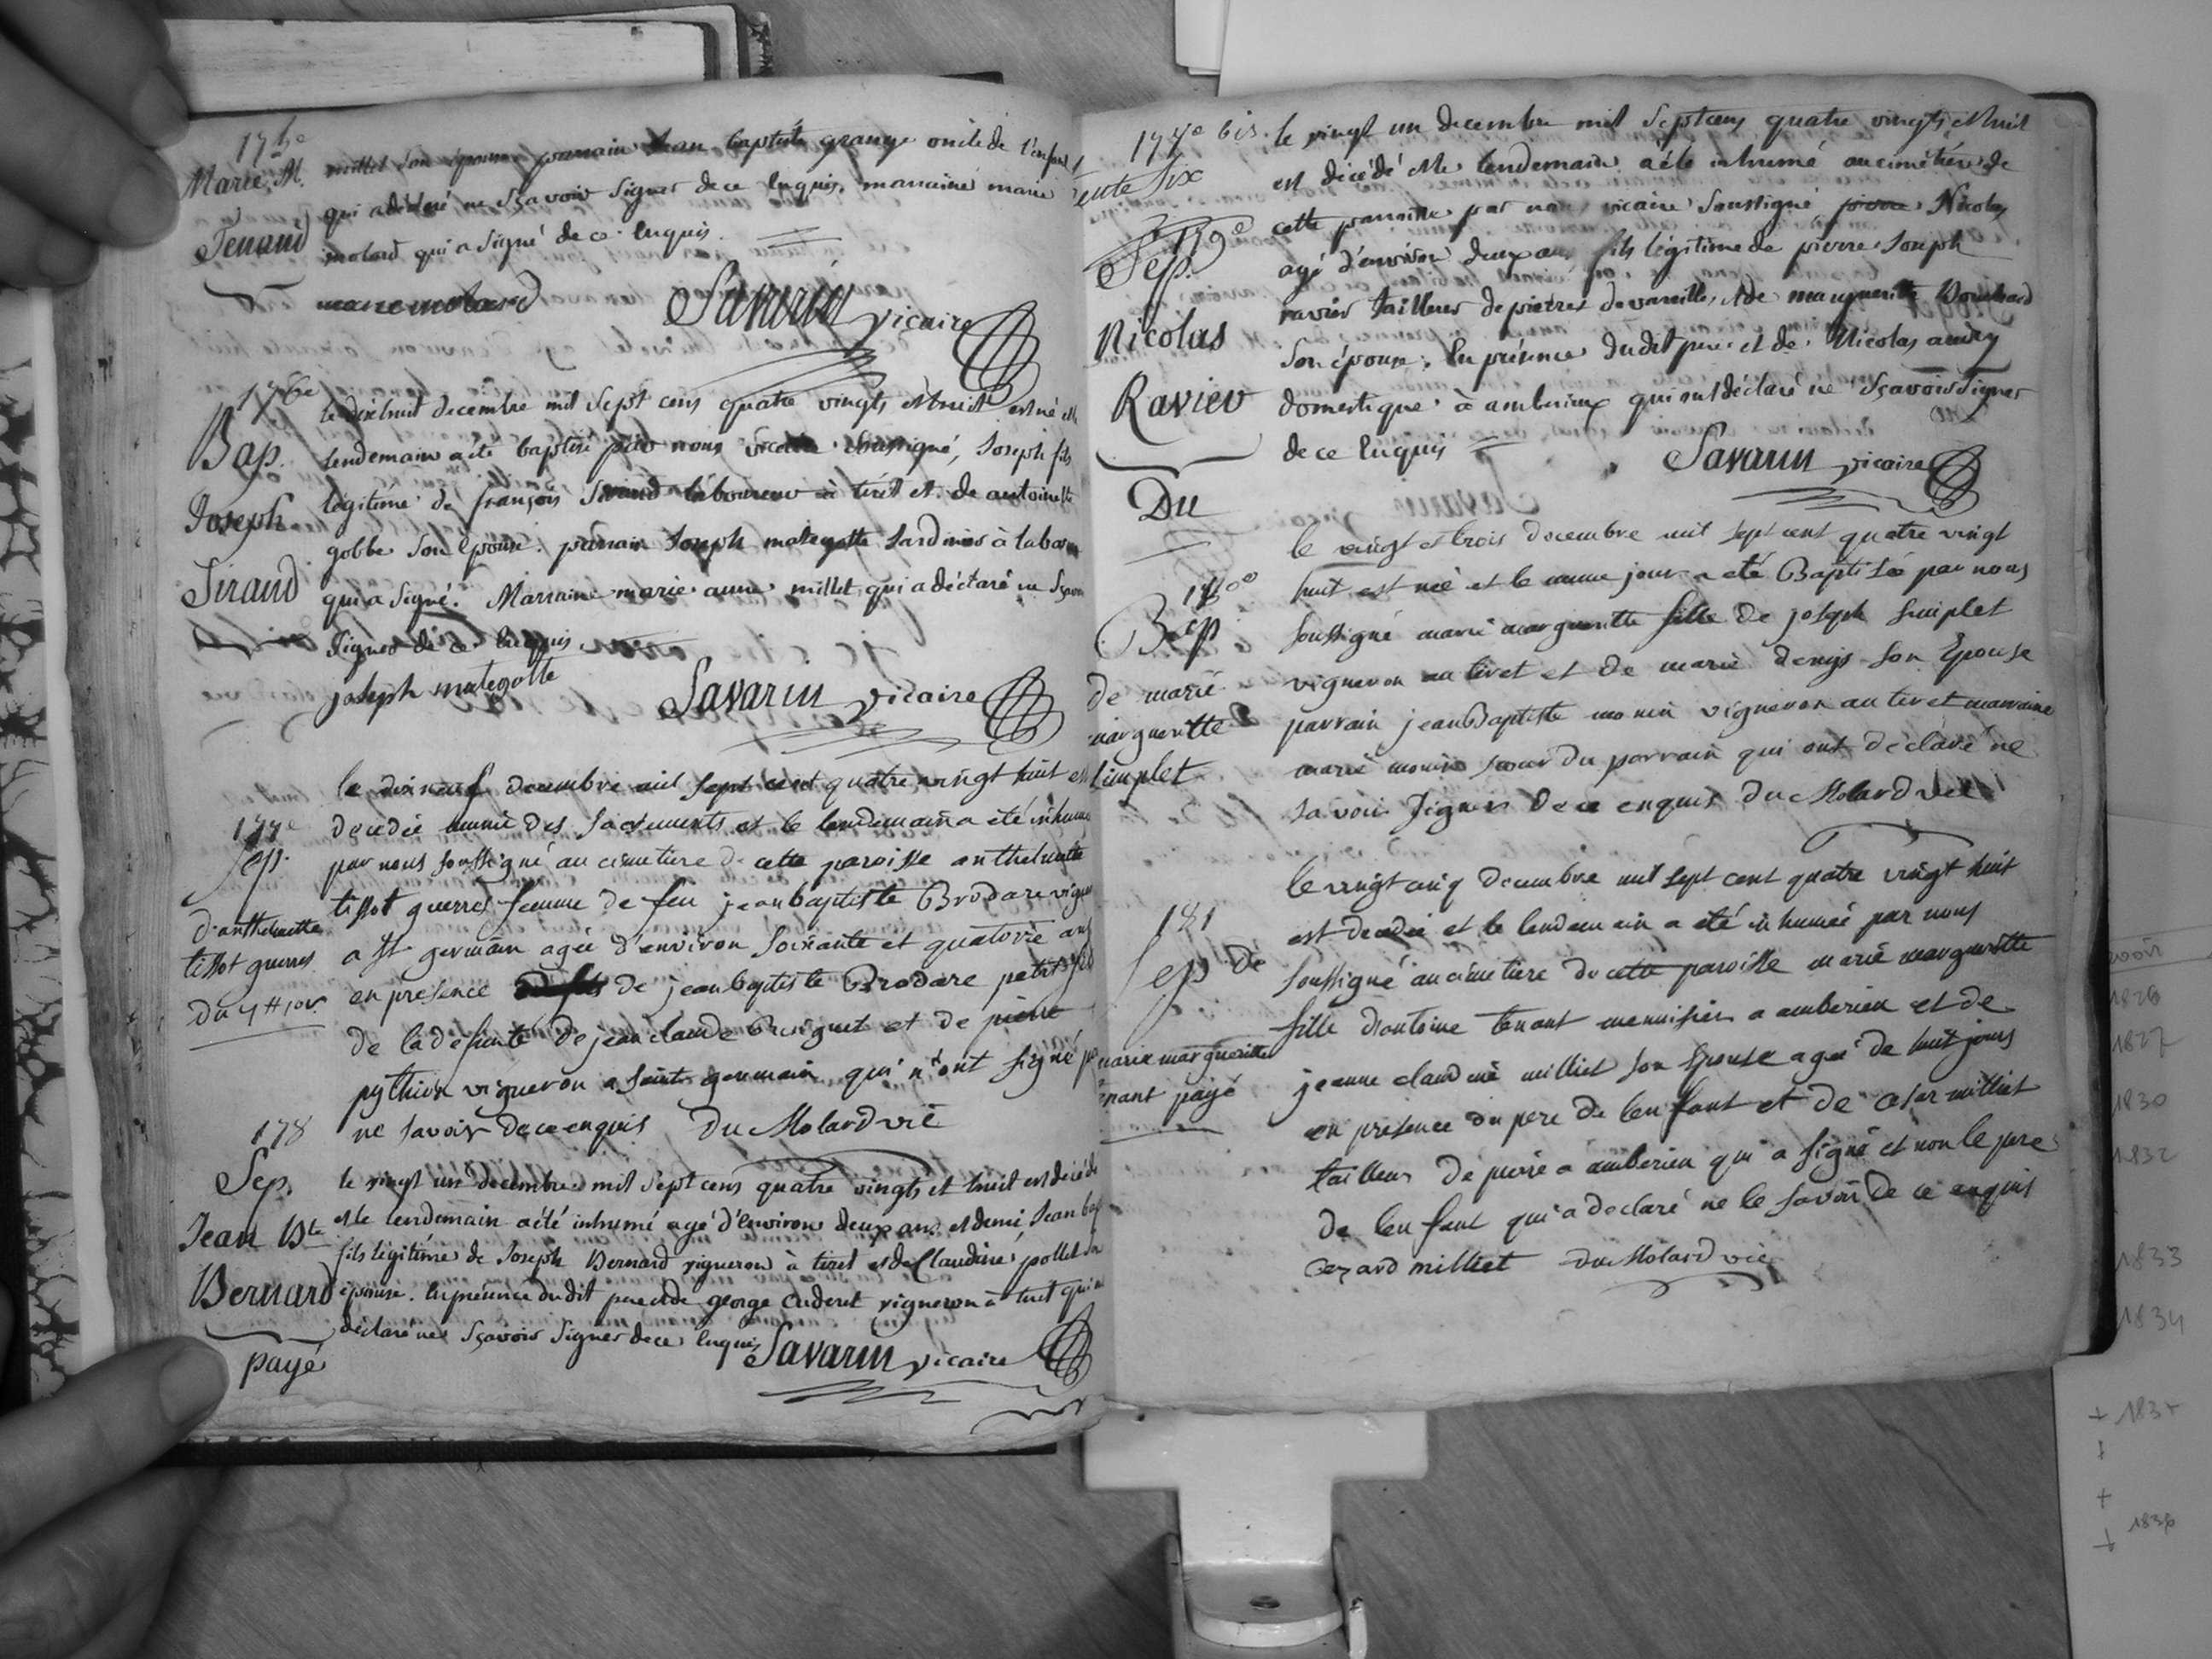 175e
Marie M.
Tenand
millet son épouse parrain Jean baptiste grange oncle de l'enfant
qui a déclaré ne sçavoir signer de ce enquis. marraine marie
molard qui a signé de ce enquis.
marie molard Savarin vicaire
176e
Bap.
Joseph
Siraud
le dixhuit decembre mil sept cens quatre vingts et huit est né et le
lendemain a été baptisé par nous vicaire soussigné, Joseph fils
légitime de françois Siraud laboureur à tiret et de antoinette
gobbe son épouse. parrain Joseph malegotte Jardinier à
qui a signé. Marraine marie anne millet qui a déclaré ne sçavoir
signer de ce enquis
joseph malegotte Savarin vicaire
177e
Sep.
d'anthelmette
tissot guerres
du 4 # jour
le dixneuf decembre mil sept cent quatre vingt huit est
decedée munie des sacrements et le lendemain a été inhumée
par nous soussigné au cimetiere de cette paroisse anthelmette
tissot guerres femme de feu jean baptiste Brodare vigneron
a st germain agée d'environ soixante et quatorze ans
en presence de jean baptiste Brodare petit fils
de la defunte de jean claude et de pierre
python vigneron a saint germain qui n'ont signé pour
ne savoir de ce enquis Du Molard vic
178
Sep.
Jean Bte
Bernard
payé
le vingt un decembre mil sept cens quatre vingts et huit est décédé
et le lendemain a été inhumé agé d'environ deux ans et demi, Jean bap
fils légitime de Joseph Bernard vigneron à tiret et de Claudine pollet son
épouse. en présence du dit pere et de george Cuderet vigneron à tiret qui ont
déclaré ne sçavoir signer de ce enquis Savarin vicaire
174e bis.
trente six
179e
Sep.
Nicolas
Ravier
Du
le vingt un decembre mil sept cens quatre vingts et huit
est décédé et le lendemain a été inhumé au cimetière de
cette paroisse par nous vicaire soussigné, pierre Nicolas
agé d'environ deux ans fils légitime de pierre Joseph
ravier tailleur de pierres de vareilles, et de marguerite Bouchard
son épouse. En présence du dit pere et de Nicolas andry
domestique à amberieux qui ont déclaré ne sçavoir signer
de ce enquis Savarin vicaire
180e
Bap
de marie
margueritte
simplet
le vingt et trois decembre mil sept cent quatre vingt
huit est née et le meme jour a été Baptisée par nous
soussigné marie margueritte fille de joseph simplet
vigneron au tiret et de marie denys son Epouse
parrain jean Baptiste monin vigneron au tiret marraine
marie monin soeur du parrain qui ont declaré ne
savoir signer de ce enquis Du Molard vic
181
Sep de
marie margueritte
tenant payé
le vingt cinq decembre mil sept cent quatre vingt huit
est decedée et le lendemain a été inhumée par nous
soussigné au cimetiere de cette paroisse marie margueritte
fille d'antoine tenant menuisier a amberieu et de
jeanne claudine milliet son Epouse agée de huit jours
en presence du pere de l'enfant et de cesar milliet
tailleur de pierre a amberieu qui a signé et non le pere
de l'enfant qui a declaré ne le savoir de ce enquis
Cezard milliet Du Molard vic
1826
1827
1830
1832
1833
1834
+ 183
+
1836